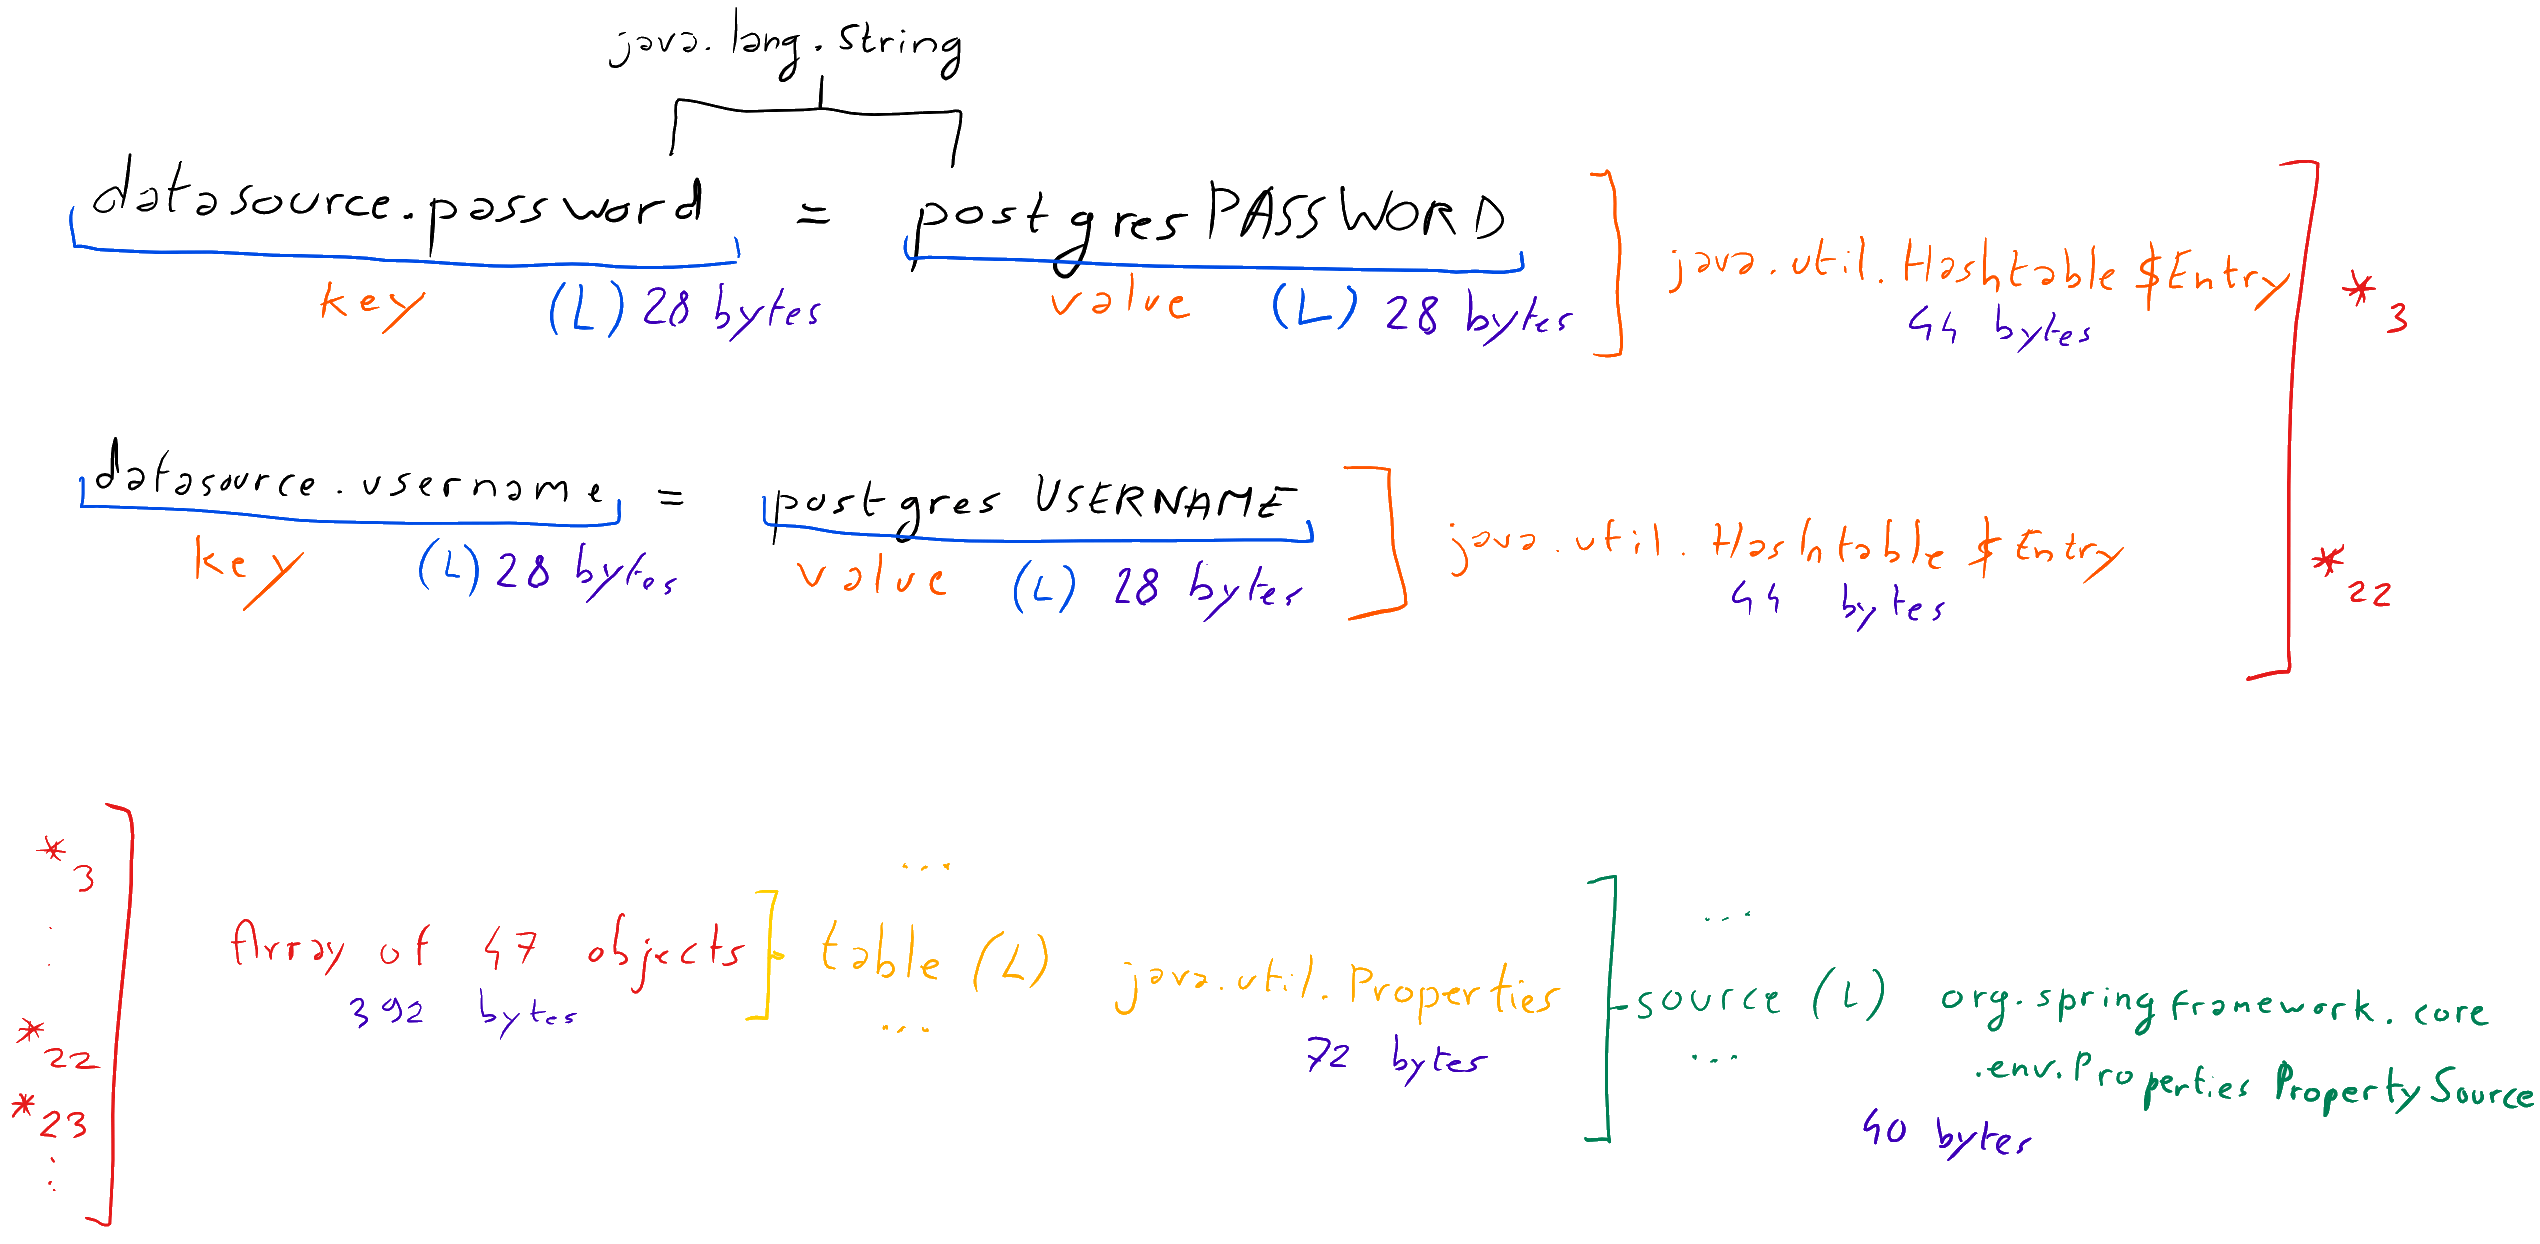 java.lang.String
datasource.password = postgresPASSWORD
key (L) 28 bytes value (L) 28 bytes
java.util.Hashtable$Entry
44 bytes
*3
datasource.username = postgres USERNAME
key (L) 28 bytes value (L) 28 bytes
java.util.Hashtable$Entry
44 bytes
*22
*3
.
.
*22
*23
:
Array of 47 objects
392 bytes
...
table (L)
...
java.util.Properties
72 bytes
...
source (L)
...
org.springframework.core
.env.PropertiesPropertySource
40 bytes